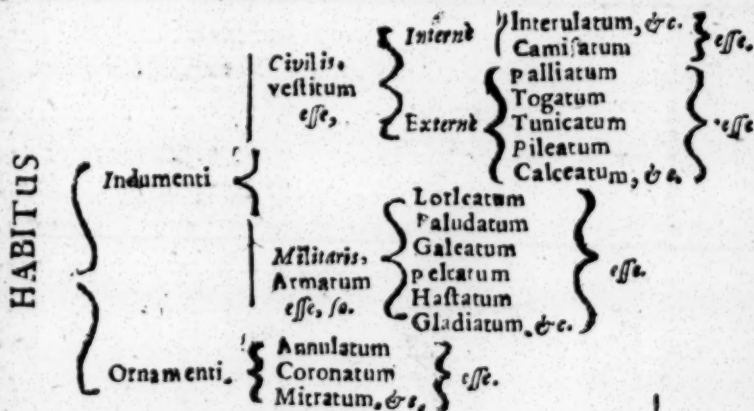 HABITUS
Indumenti
Civilis.
veſtitum
eſſe,
Internè
Interulatum, &c.
Camiſatum
eſſe.
Externè
palliatum
Togatum
Tunicatum
Pileatum
Calceatum, &c.
eſſe
Militaris,
Armatum
eſſe, ſc.
Loricatum
Paludatum
Galeatum
peltatum
Haſtatum
Gladiatum, &c.
eſſe.
Ornamenti.
Annulatum
Coronatum
Mitratum, &c.
eſſe.